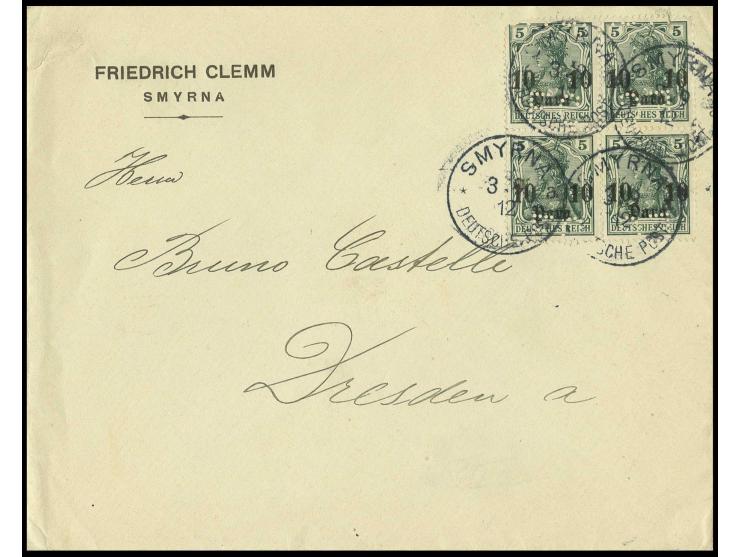 FRIEDRICH CLEMM
SMYRNA
Herrn
Bruno Castelli
Dresden a
5 5
10 10
Para
DEUTSCHES REICH
5 5
10 10
Para
DEUTSCHES REICH
5 5
10 10
Para
DEUTSCHES REICH
5 5
10 10
Para
DEUTSCHES REICH
SMYRNA
3
12
DEUTSCHE POST
SMYRNA
DEUTSCHE POST
SMYRNA
SMYRNA